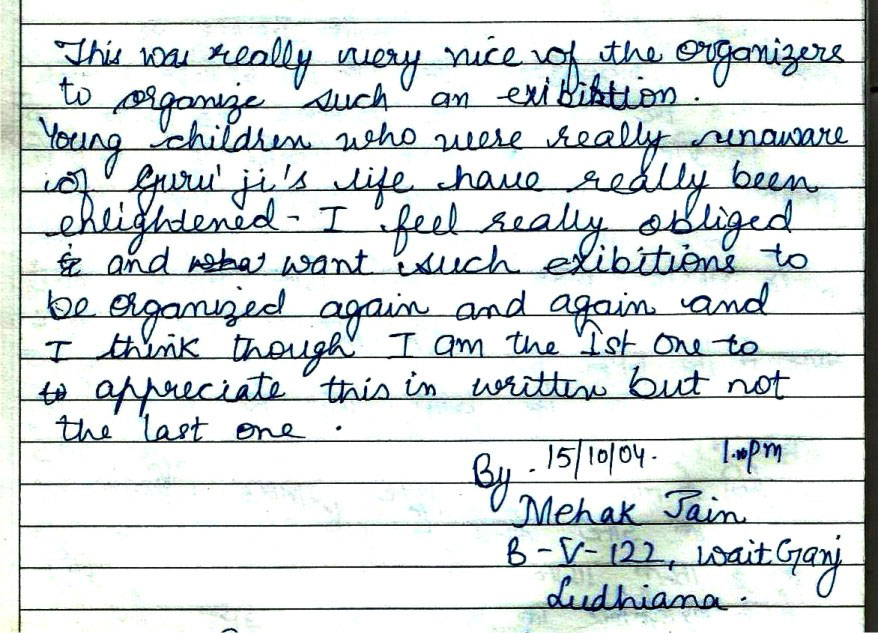 This was really very nice of the organizers
to organize such an exibition.
Young children who were really unaware
of Guru ji's life have really been
enlightened - I feel really obliged
and want such exibitions to
be organized again and again and
I think though I am the Ist one to
to appreciate this in written but not
the last one.
15/10/04. 1.00pm
By.
Mehak Jain
B-V-122, Wait Ganj
Ludhiana.